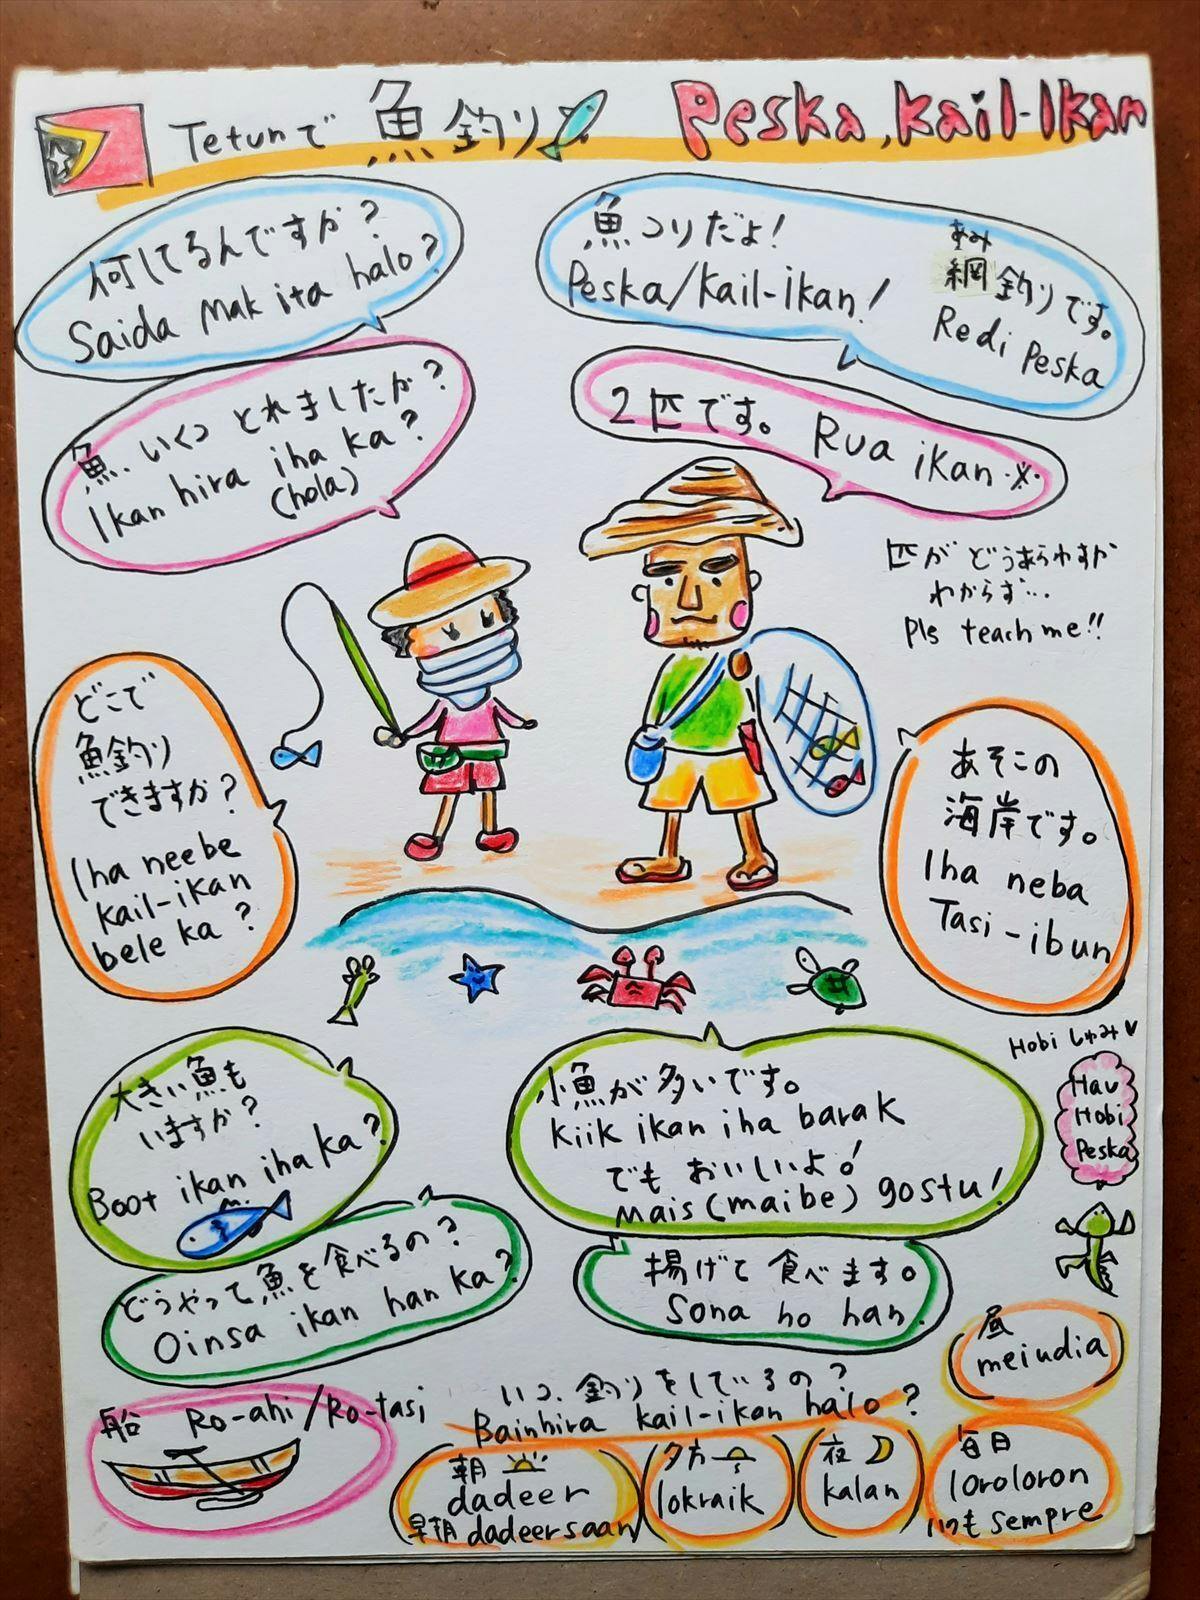 Tetunで 魚釣り
Peska, Kail-Ikan
何してるんですか?
Saida Mak ita halo?
魚つりだよ!
Peska/Kail-ikan!
あみ
網釣りです。
Redi Peska
魚、いくつ とれましたか?
Ikan hira iha ka?
(hola)
2匹です。 Rua ikan ※
匹が どうあらわすか
わからず…
Pls teach me!!
どこで
魚釣り
できますか?
Iha neebe
kail-ikan
bele ka?
あそこの
海岸です。
Iha neba
Tasi-ibun
大きい魚も
いますか?
Boot ikan iha ka?
小魚が多いです。
Kiik ikan iha barak
でも おいしいよ!
Mais (maibe) gostu!
Hobi しゅみ♥
Hau
Hobi
Peska
どうやって魚を食べるの?
Oinsa ikan han ka?
揚げて 食べます。
Sona ho han.
船 Ro-ahi/Ro-tasi
いつ、釣りをしているの?
Bainhira kail-ikan halo?
昼
meiudia
朝
dadeer
早朝 dadeersaan
夕方
lokraik
夜
kalan
毎日
loroloron
いつも sempre